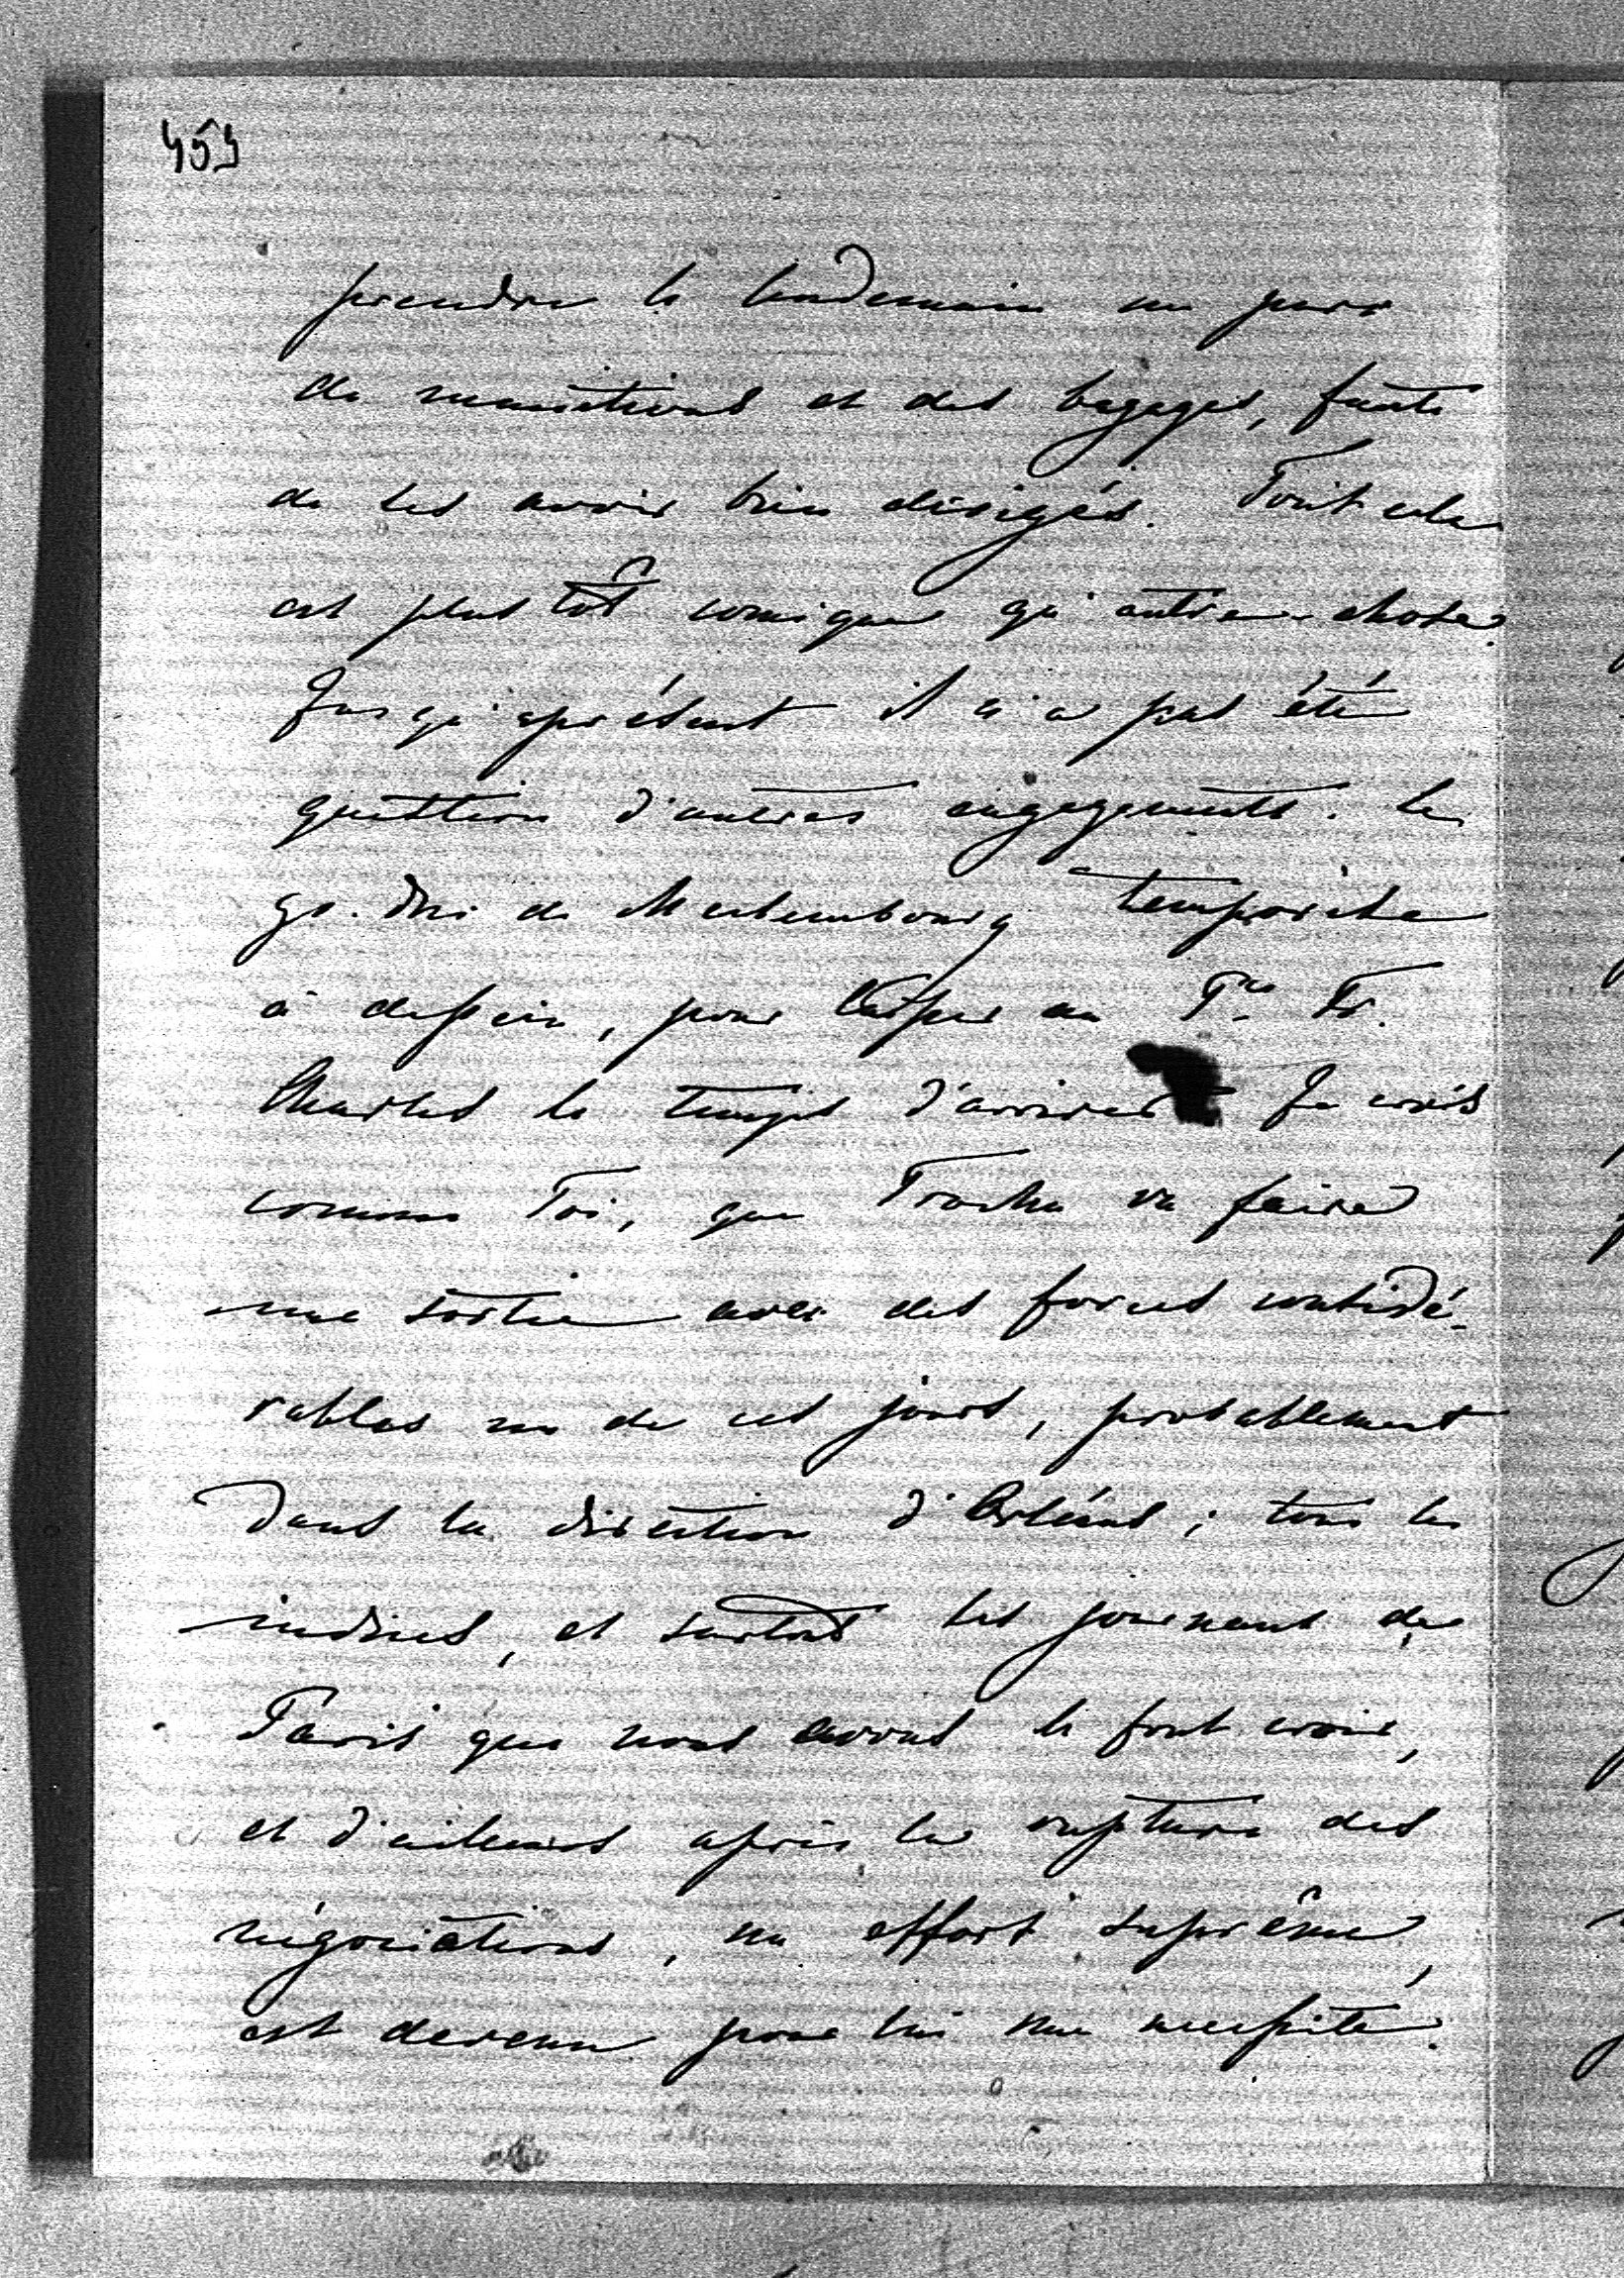 453
prendre le lendemain un parc
de munitions et des bagages, faute
de les avoir bien dirigés. Tout cela
est plus tôt comique qu'autre chose.
Jusqu'aprésent il n'a pas été
question d'autres engagements. Le
gr. duc de Meclembourg temporise
à dessein, pour laisser au Pce Fr.
Charles le temps d'arriver. Je crois
comme Toi, que Trochu va faire
une sortie avec des forces considé-
rables un de ces jours, probablement
dans la direction d'Orléans; tous les
indices, et surtout les journaux de
Paris que nous avons le font croire,
et d'ailleurs après la rupture des
négociations, un effort suprême,
est devenu pour lui une necessité.